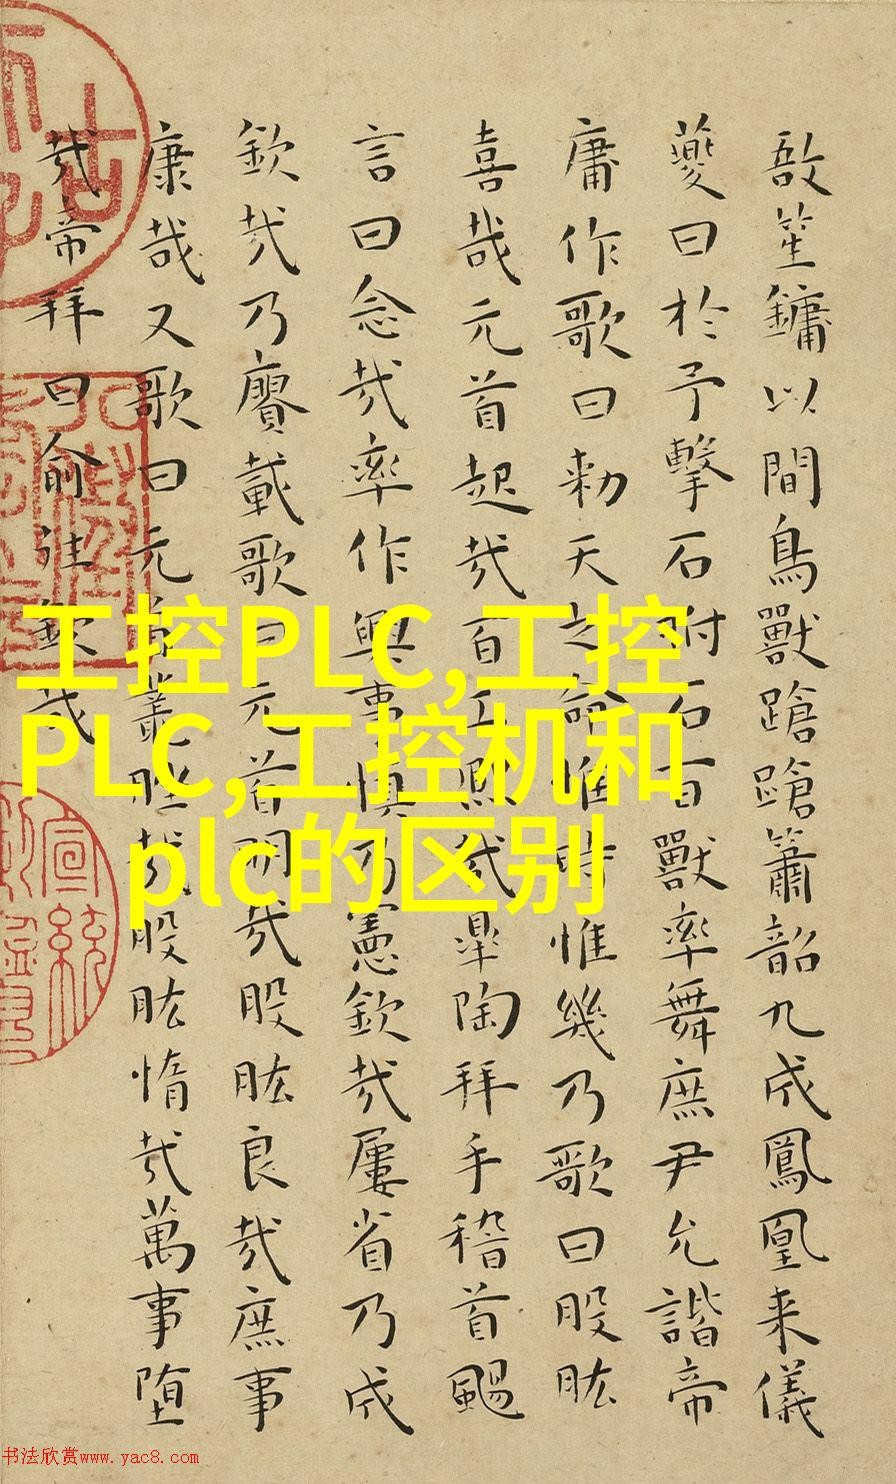 敔笙鏞以間鳥獸蹌蹌簫韶九成鳳凰来儀
夔曰於予擊石拊石百獸率舞庶尹允諧帝
庸作歌曰勑天之命惟時惟幾乃歌曰股肱
喜哉元首起哉百工熙哉皐陶拜手稽首颺
言曰念哉率作興事慎乃憲欽哉屢省乃成
欽哉乃賡載歌曰元首明哉股肱良哉庶事
康哉又歌曰元首叢脞哉股肱惰哉萬事堕
哉帝拜曰俞往欽哉
工控PLC,工控
PLC,工控机和
plc的区别
书法欣赏www.yac8.com